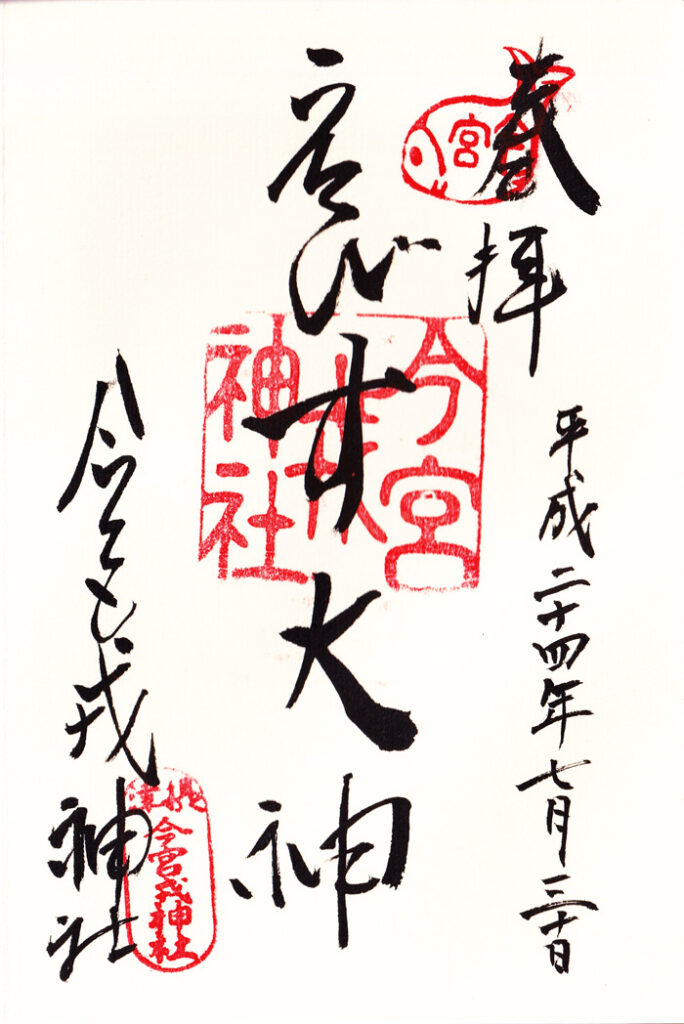 奉拝
平成二十四年七月三十日
ゑびす大神
今宮戎神社
今宮
今宮戎神社
今宮戎神社